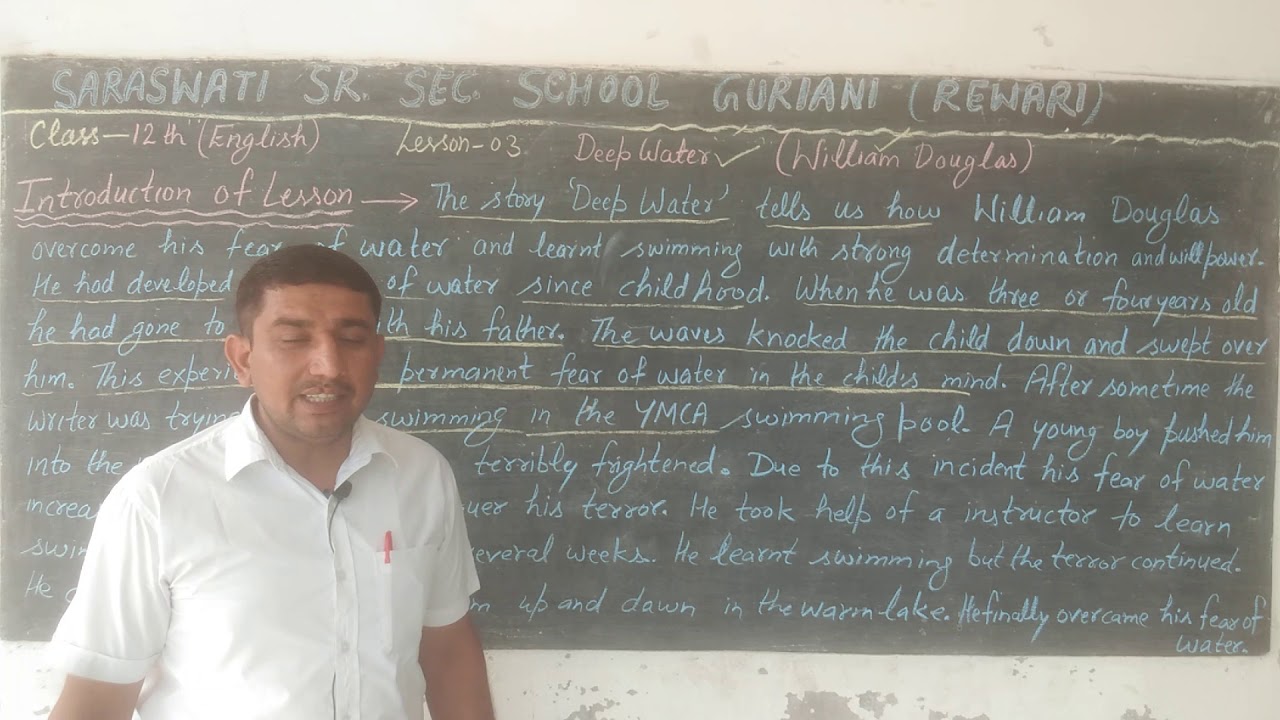 SARASWATI SR. SEC. SCHOOL GURIANI (REWARI)
Class-12th (English) Lesson-03 Deep Water (William Douglas)
Introduction of Lesson → The story 'Deep Water' tells us how William Douglas
overcome his fear of water and learnt swimming with strong determination and will power.
He had developed of water since childhood. When he was three or four years old
he had gone to with his father. The waves knocked the child down and swept over
him. This permanent fear of water in the child's mind. After sometime the
writer was swimming in the YMCA swimming pool. A young boy pushed him
into the terribly frightened. Due to this incident his fear of water
his terror. He took help of a instructor to learn
several weeks. He learnt swimming but the terror continued.
He up and dawn in the warm lake. He finally overcame his fear of
water.